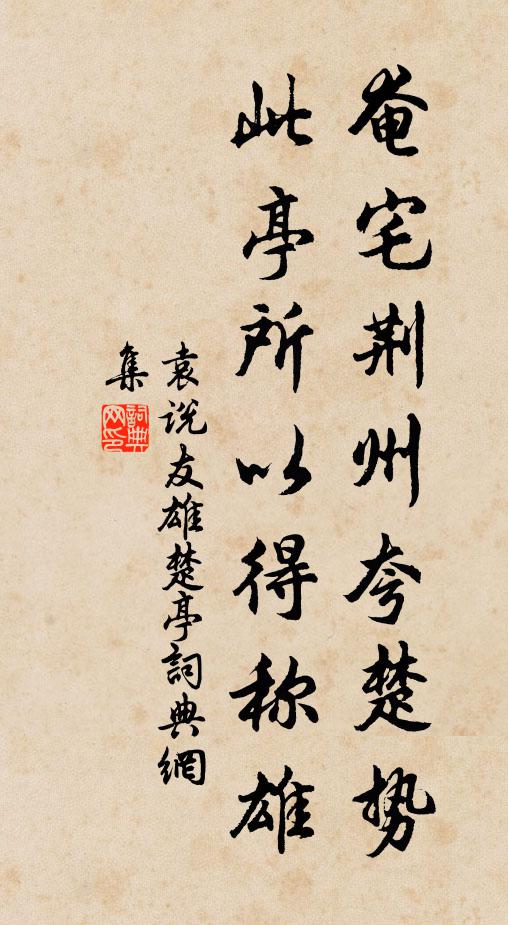 奄宅荆州夸楚势
此亭所以得称雄
袁说友雄楚亭詞典網
集
詞典网印